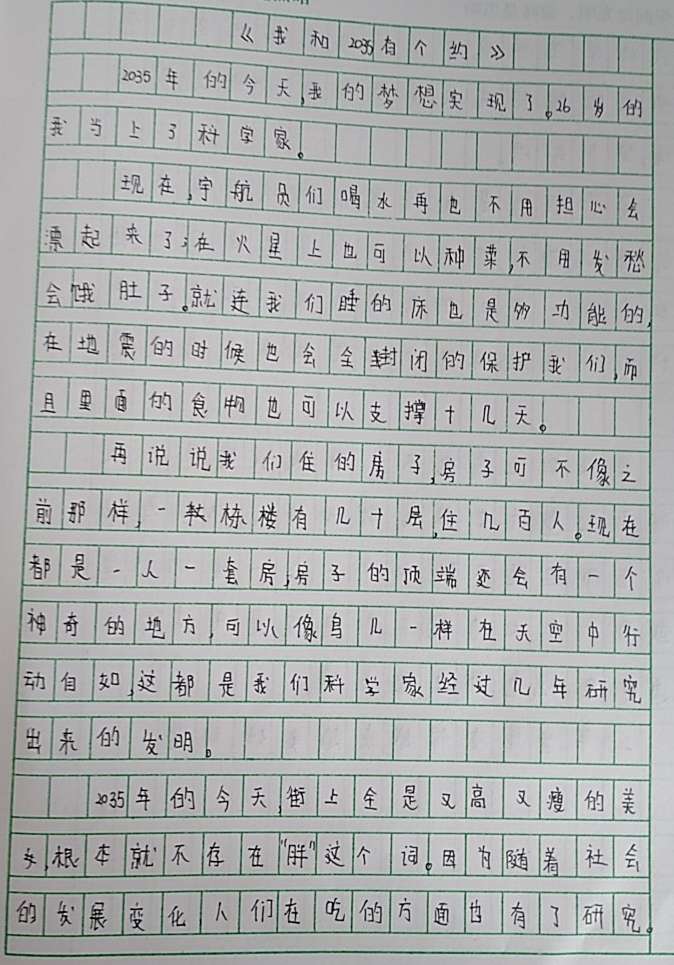 《我和2035有个约》
2035年的今天,我的梦想实现了。26岁的
我当上了科学家。
现在,宇航员们喝水再也不用担心会
漂起来了;在火星上也可以种菜,不用发愁
会饿肚子。就连我们睡的床也是多功能的,
在地震的时候也会全封闭的保护我们,而
且里面的食物也可以支撑十几天。
再说说我们住的房子,房子可不像之
前那样,一栋楼有几十层,住几百人。现在
都是一人一套房,房子的顶端还会有一个
神奇的地方,可以像鸟儿一样在天空中行
动自如,这都是我们科学家经过几年研究
出来的发明。
2035年的今天,街上全是又高又瘦的美
女,根本就不存在"胖"这个词。因为随着社会
的发展变化人们在吃的方面也有了研究。